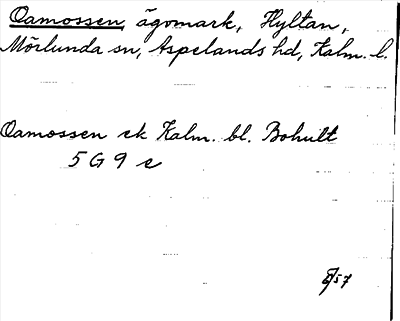 Oamossen, ägomark, Hyltan,
Mörlunda sn, Aspelands hd, Kalm. l.
Oamossen ek Kalm. bl. Bohult
5 G 9 e
57